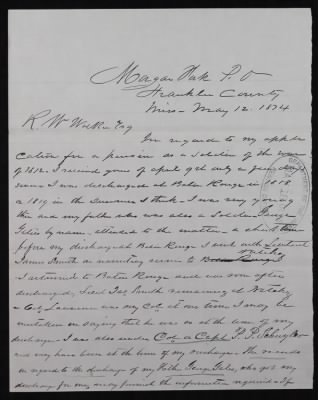 Morgan Fork P.O
Franklin County
Miss May 12. 1874
R W Esq
In regard to my appli
cation for a pension as a soldier of the war
of 1812. I received yours of april 9th only a few days
since I was discharged at Baton Rouge in 1818
or 1819 in the Summer I think. I was very young
then and my father who was also a Soldier George
Giles by name, attended to the matter - a short time
before my discharge at Baton Rouge I went with Lieutent
James Smith on recruiting service to Natchez
I returned to Baton Rouge and was soon after
discharged, Lieut Jas Smith remaining at Natchez
Col Lawrence was my Col at one time I may be
mistaken in saying that he was so at the time of my
discharge. I was also under Col or Capt
and may have been at the time of my discharge. The records
in regard to the discharge of my Father George Giles, who got my
discharge for me may furnish the information required. If